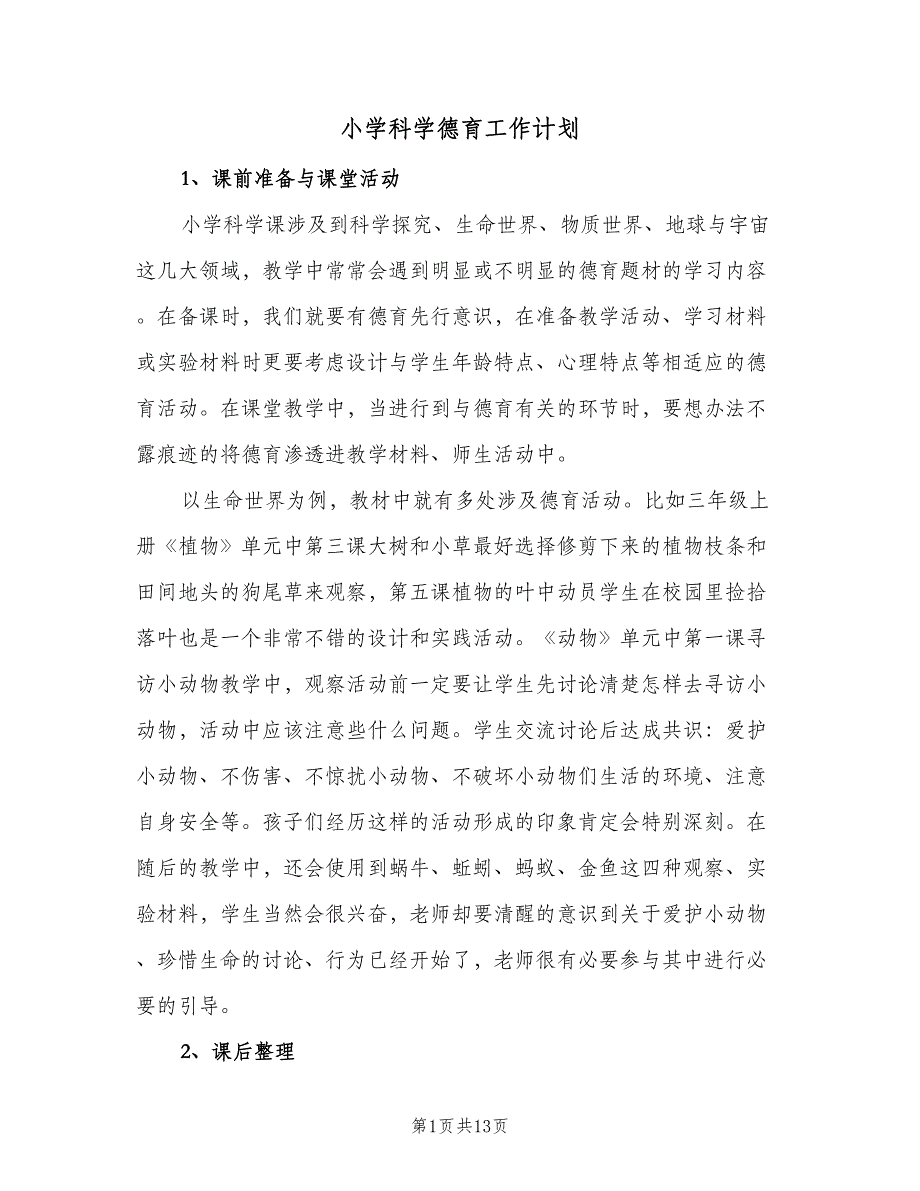 小学科学德育工作计划
1、课前准备与课堂活动
小学科学课涉及到科学探究、生命世界、物质世界、地球与宇宙
这几大领域，教学中常常会遇到明显或不明显的德育题材的学习内容
。在备课时，我们就要有德育先行意识，在准备教学活动、学习材料
或实验材料时更要考虑设计与学生年龄特点、心理特点等相适应的德
育活动。在课堂教学中，当进行到与德育有关的环节时，要想办法不
露痕迹的将德育渗透进教学材料、师生活动中。
以生命世界为例，教材中就有多处涉及德育活动。比如三年级上
册《植物》单元中第三课大树和小草最好选择修剪下来的植物枝条和
田间地头的狗尾草来观察，第五课植物的叶中动员学生在校园里捡拾
落叶也是一个非常不错的设计和实践活动。《动物》单元中第一课寻
访小动物教学中，观察活动前一定要让学生先讨论清楚怎样去寻访小
动物，活动中应该注意些什么问题。学生交流讨论后达成共识：爱护
小动物、不伤害、不惊扰小动物、不破坏小动物们生活的环境、注意
自身安全等。孩子们经历这样的活动形成的印象肯定会特别深刻。在
随后的教学中，还会使用到蜗牛、蚯蚓、蚂蚁、金鱼这四种观察、实
验材料，学生当然会很兴奋，老师却要清醒的意识到关于爱护小动物
、珍惜生命的讨论、行为已经开始了，老师很有必要参与其中进行必
要的引导。
2、课后整理
第1页共13页